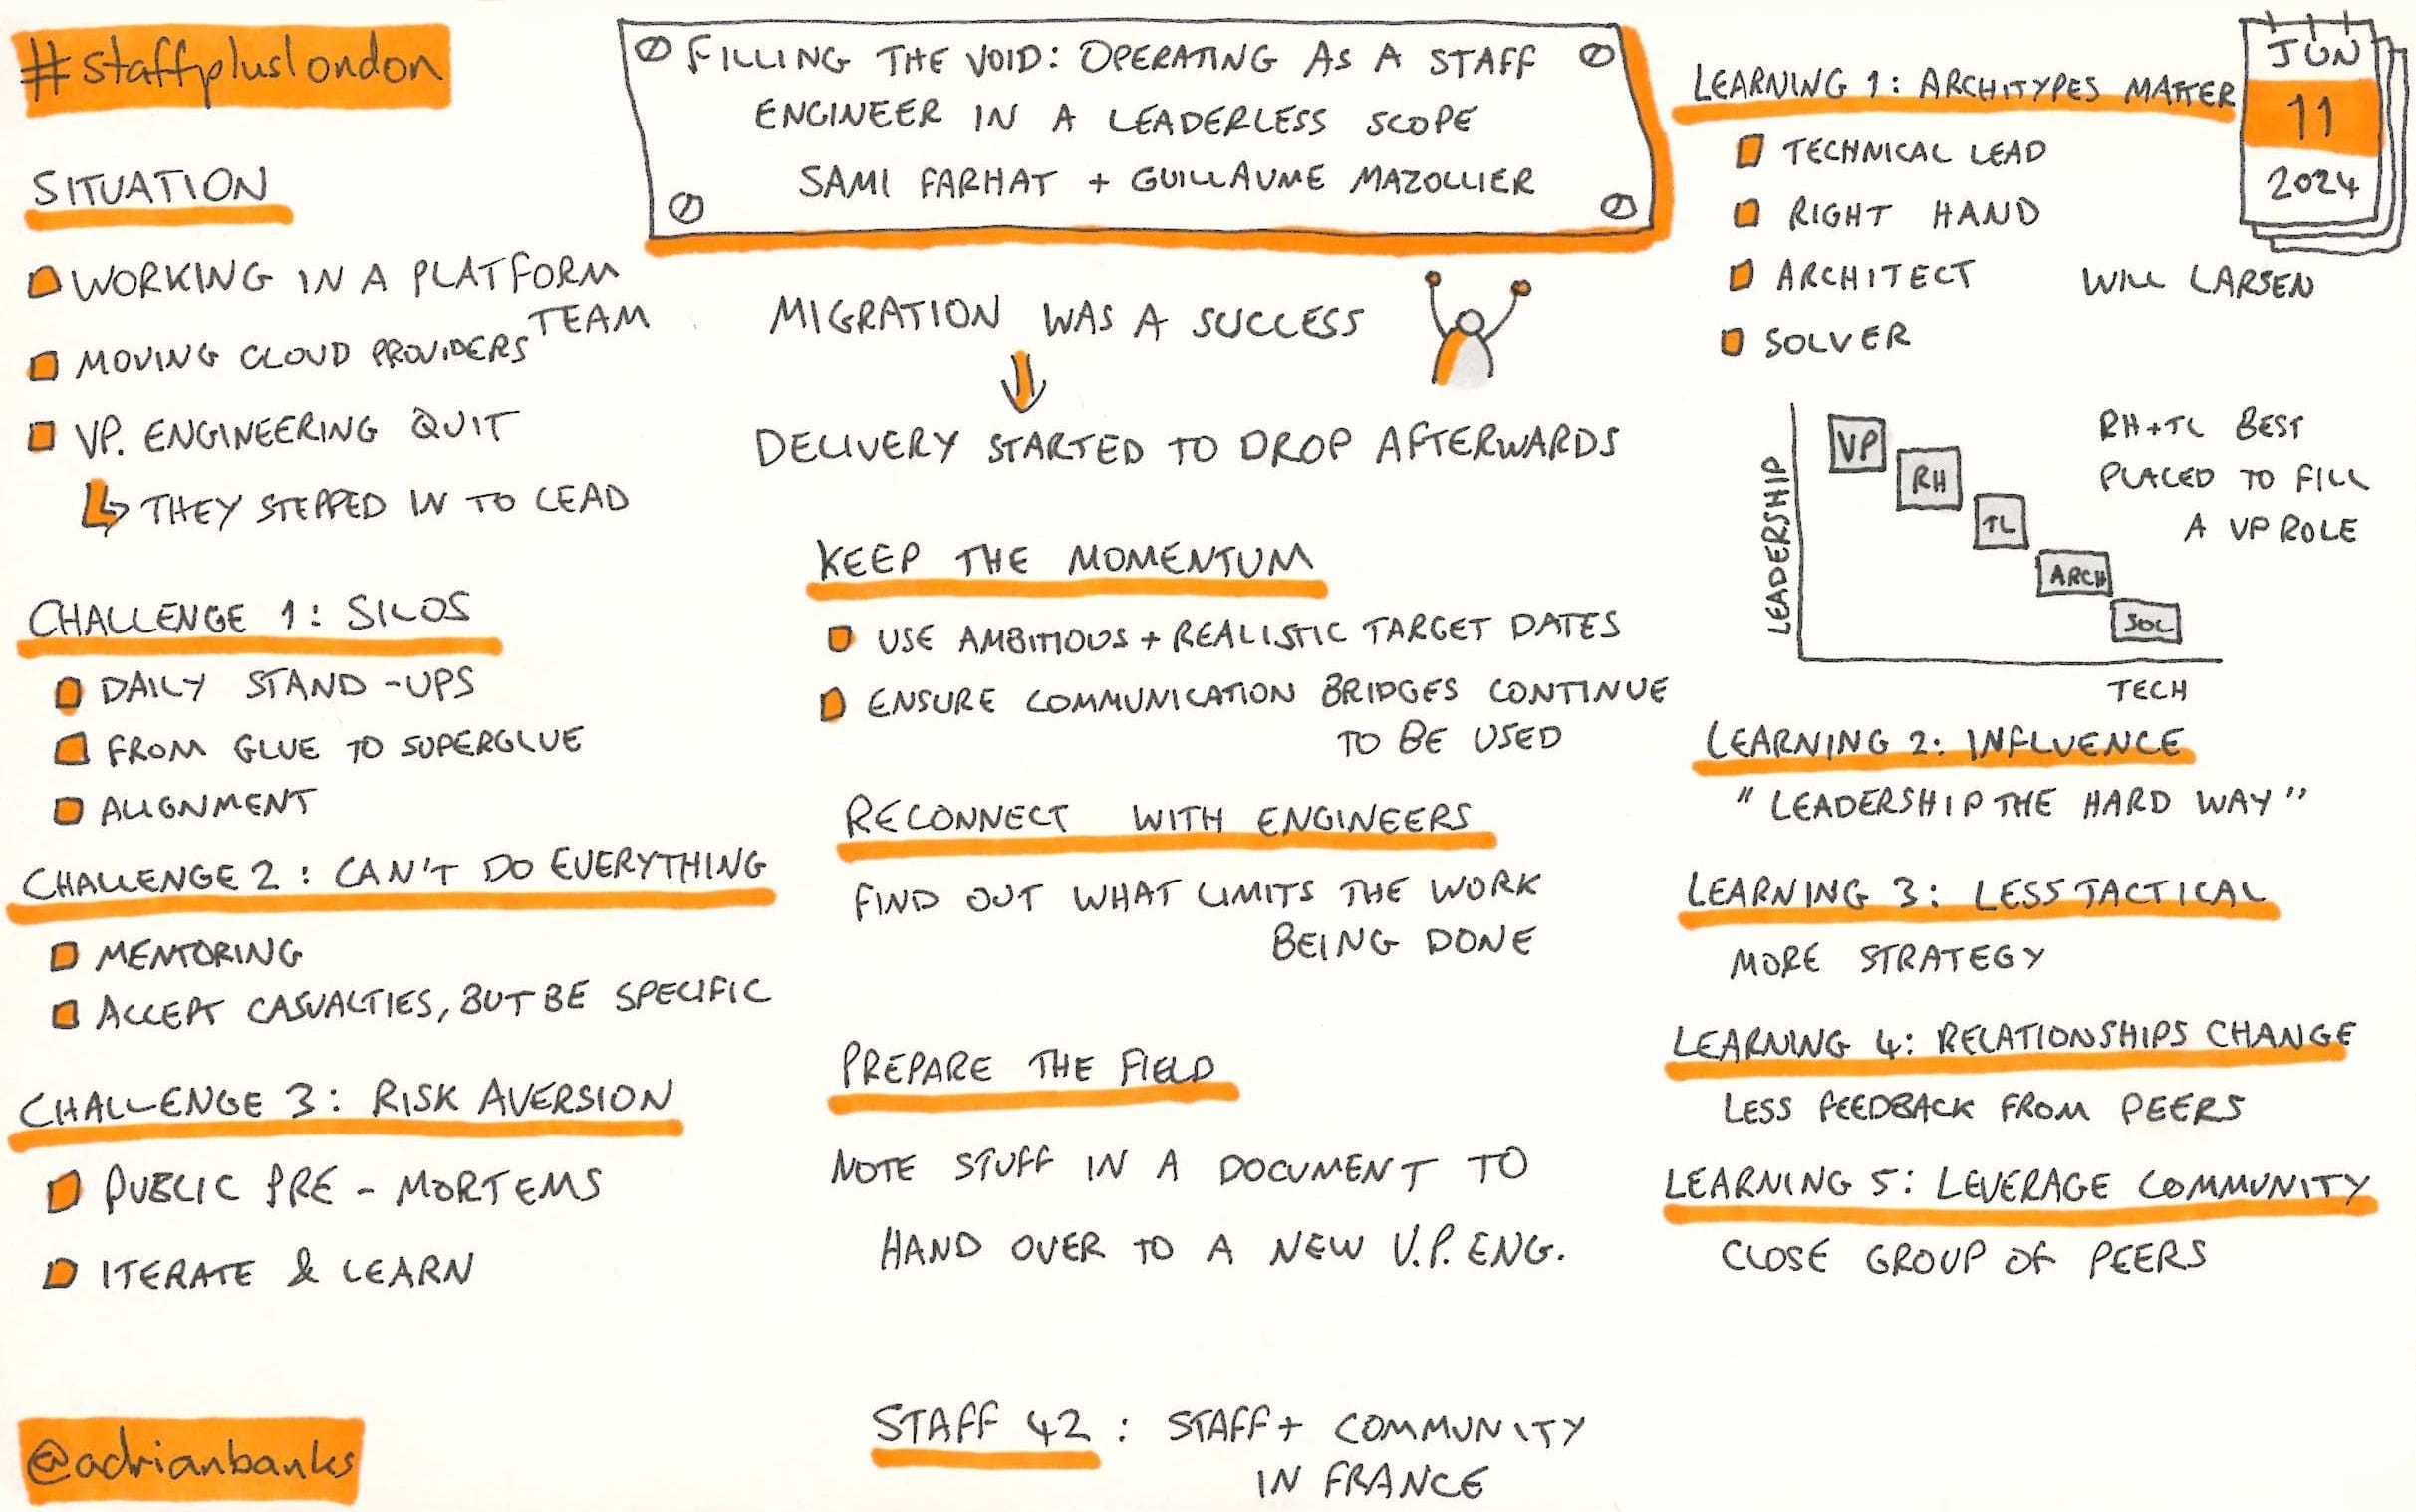 #staffpluslondon
FILLING THE VOID: OPERATING AS A STAFF
ENGINEER IN A LEADERLESS SCOPE
SAMI FARHAT + GUILLAUME MAZOLLIER
JUN
11
2024
SITUATION
WORKING IN A PLATFORM
TEAM
MOVING CLOUD PROVIDERS
VP. ENGINEERING QUIT
THEY STEPPED IN TO LEAD
CHALLENGE 1: SILOS
DAILY STAND-UPS
FROM GLUE TO SUPERGLUE
ALIGNMENT
CHALLENGE 2: CAN'T DO EVERYTHING
MENTORING
ACCEPT CASUALTIES, BUT BE SPECIFIC
CHALLENGE 3: RISK AVERSION
PUBLIC PRE-MORTEMS
ITERATE & LEARN
@adrianbanks
MIGRATION WAS A SUCCESS
DELIVERY STARTED TO DROP AFTERWARDS
KEEP THE MOMENTUM
USE AMBITIOUS + REALISTIC TARGET DATES
ENSURE COMMUNICATION BRIDGES CONTINUE
TO BE USED
RECONNECT WITH ENGINEERS
FIND OUT WHAT LIMITS THE WORK
BEING DONE
PREPARE THE FIELD
NOTE STUFF IN A DOCUMENT TO
HAND OVER TO A NEW V.P. ENG.
STAFF 42: STAFF+ COMMUNITY
IN FRANCE
LEARNING 1: ARCHITYPES MATTER
TECHNICAL LEAD
RIGHT HAND
ARCHITECT
WILL LARSEN
SOLVER
LEADERSHIP
VP
RH
TL
ARCH
SOL
TECH
RH+TL BEST
PLACED TO FILL
A VP ROLE
LEARNING 2: INFLUENCE
"LEADERSHIP THE HARD WAY"
LEARNING 3: LESS TACTICAL
MORE STRATEGY
LEARNING 4: RELATIONSHIPS CHANGE
LESS FEEDBACK FROM PEERS
LEARNING 5: LEVERAGE COMMUNITY
CLOSE GROUP OF PEERS